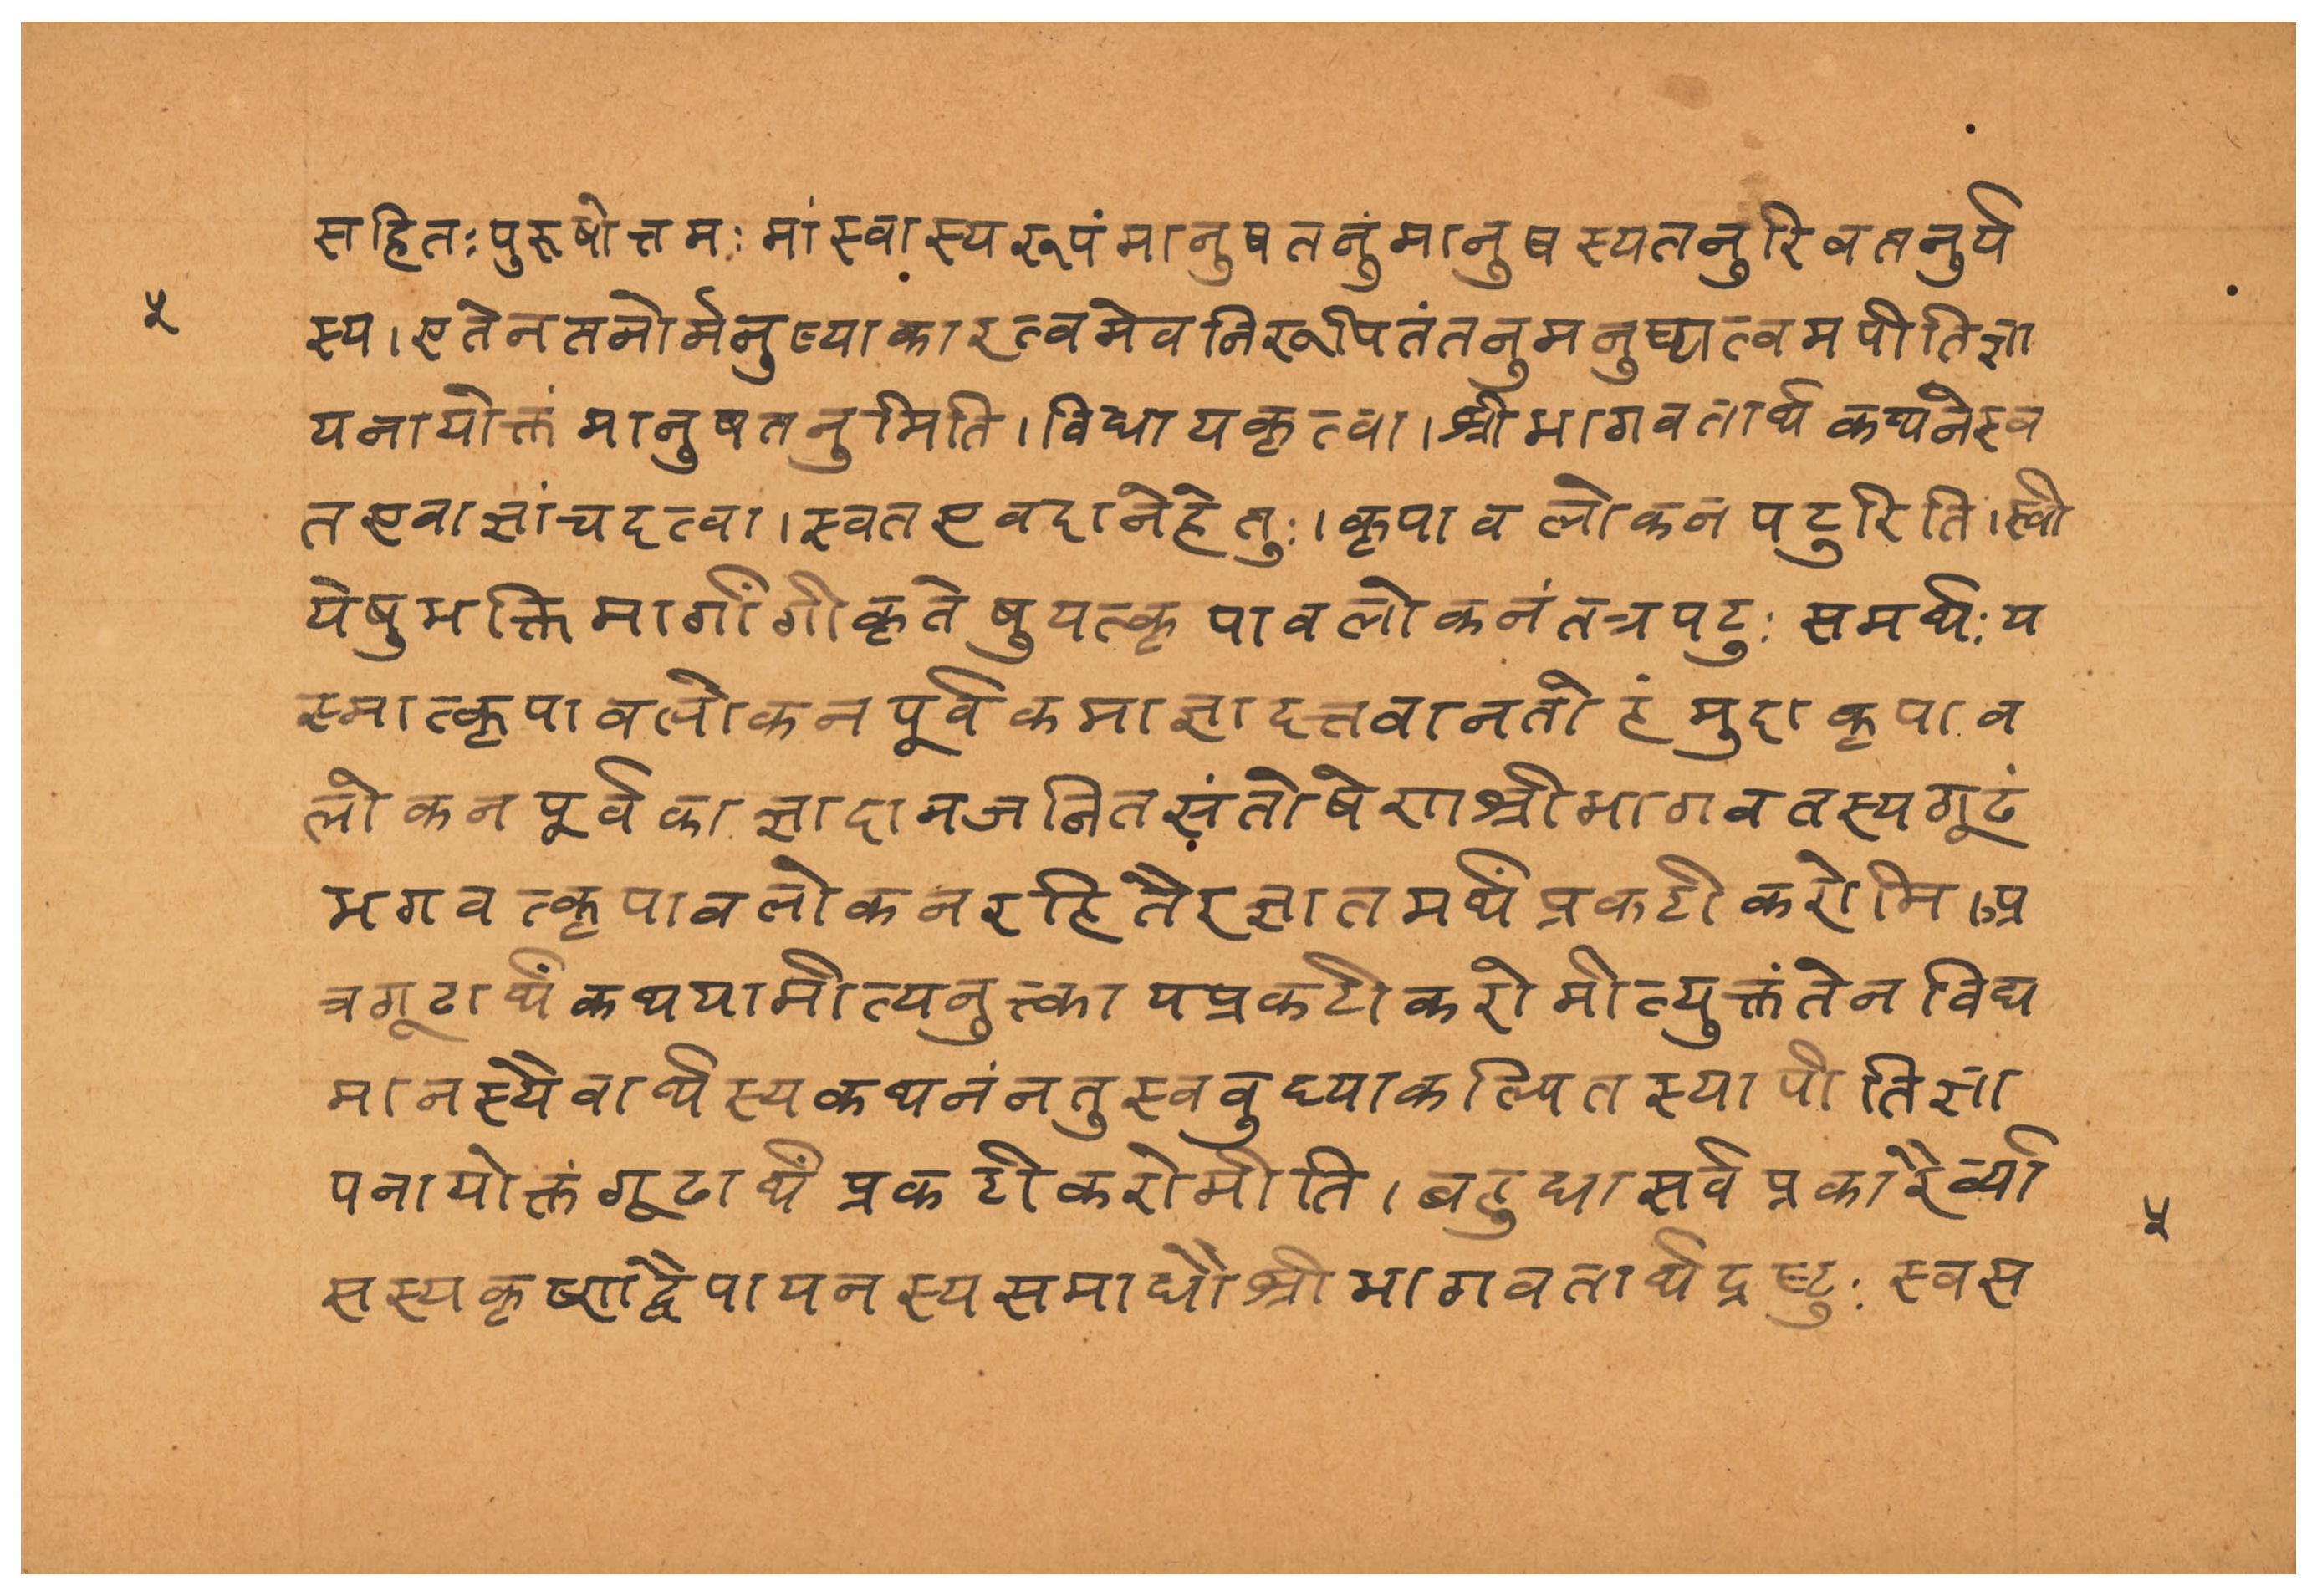 सहितःपुरूषोत्तमःमांस्वास्यरूपंमानुषतनुंमानुषस्यतनुरिवतनुर्य
५
स्य।एतेनतनोर्मनुष्याकारत्वमेवनिरूपितंतनुमनुष्यत्वमपीतिज्ञा
यनायोक्तंमानुषतनुमिति।विधायकृत्वा।श्रीभागवतार्थकथनेस्व
तएवाज्ञांचदत्वा।स्वतएवदानेहेतुः।कृपावलोकनपटुरिति।स्वी
येषुभक्तिमार्गांगीकृतेषुयत्कृपावलोकनंतत्रपटुःसमर्थःय
स्मात्कृपावलोकनपूर्वकमाज्ञादत्तवानतोहंमुदाकृपाव
लोकनपूर्वकाज्ञादानजनितसंतोषेणश्रीभागवतस्यगूढं
भगवत्कृपावलोकनरहितैरज्ञातमर्थंप्रकटीकरोमि।प्र
त्रगूढार्थंकथयामीत्यनुत्कापप्रकटीकरोमीत्युक्तंतेनविद्य
मानस्यैवार्थस्यकथनंनतुस्ववुध्याकल्पितस्यापीतिज्ञा
पनायोक्तंगूढार्थंप्रकटीकरोमीति।बहुधासर्वप्रकारैर्व्या
५
सस्यकृष्णद्वैपायनस्यसमाधौश्रीभागवतार्थद्रष्टुःस्वस